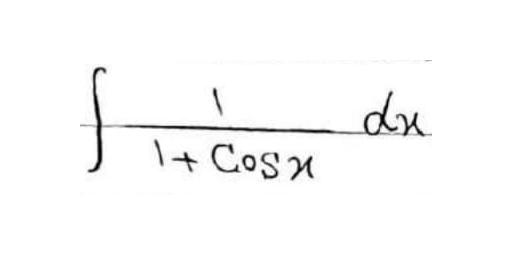 ∫ 1 / (1 + Cosx) dx